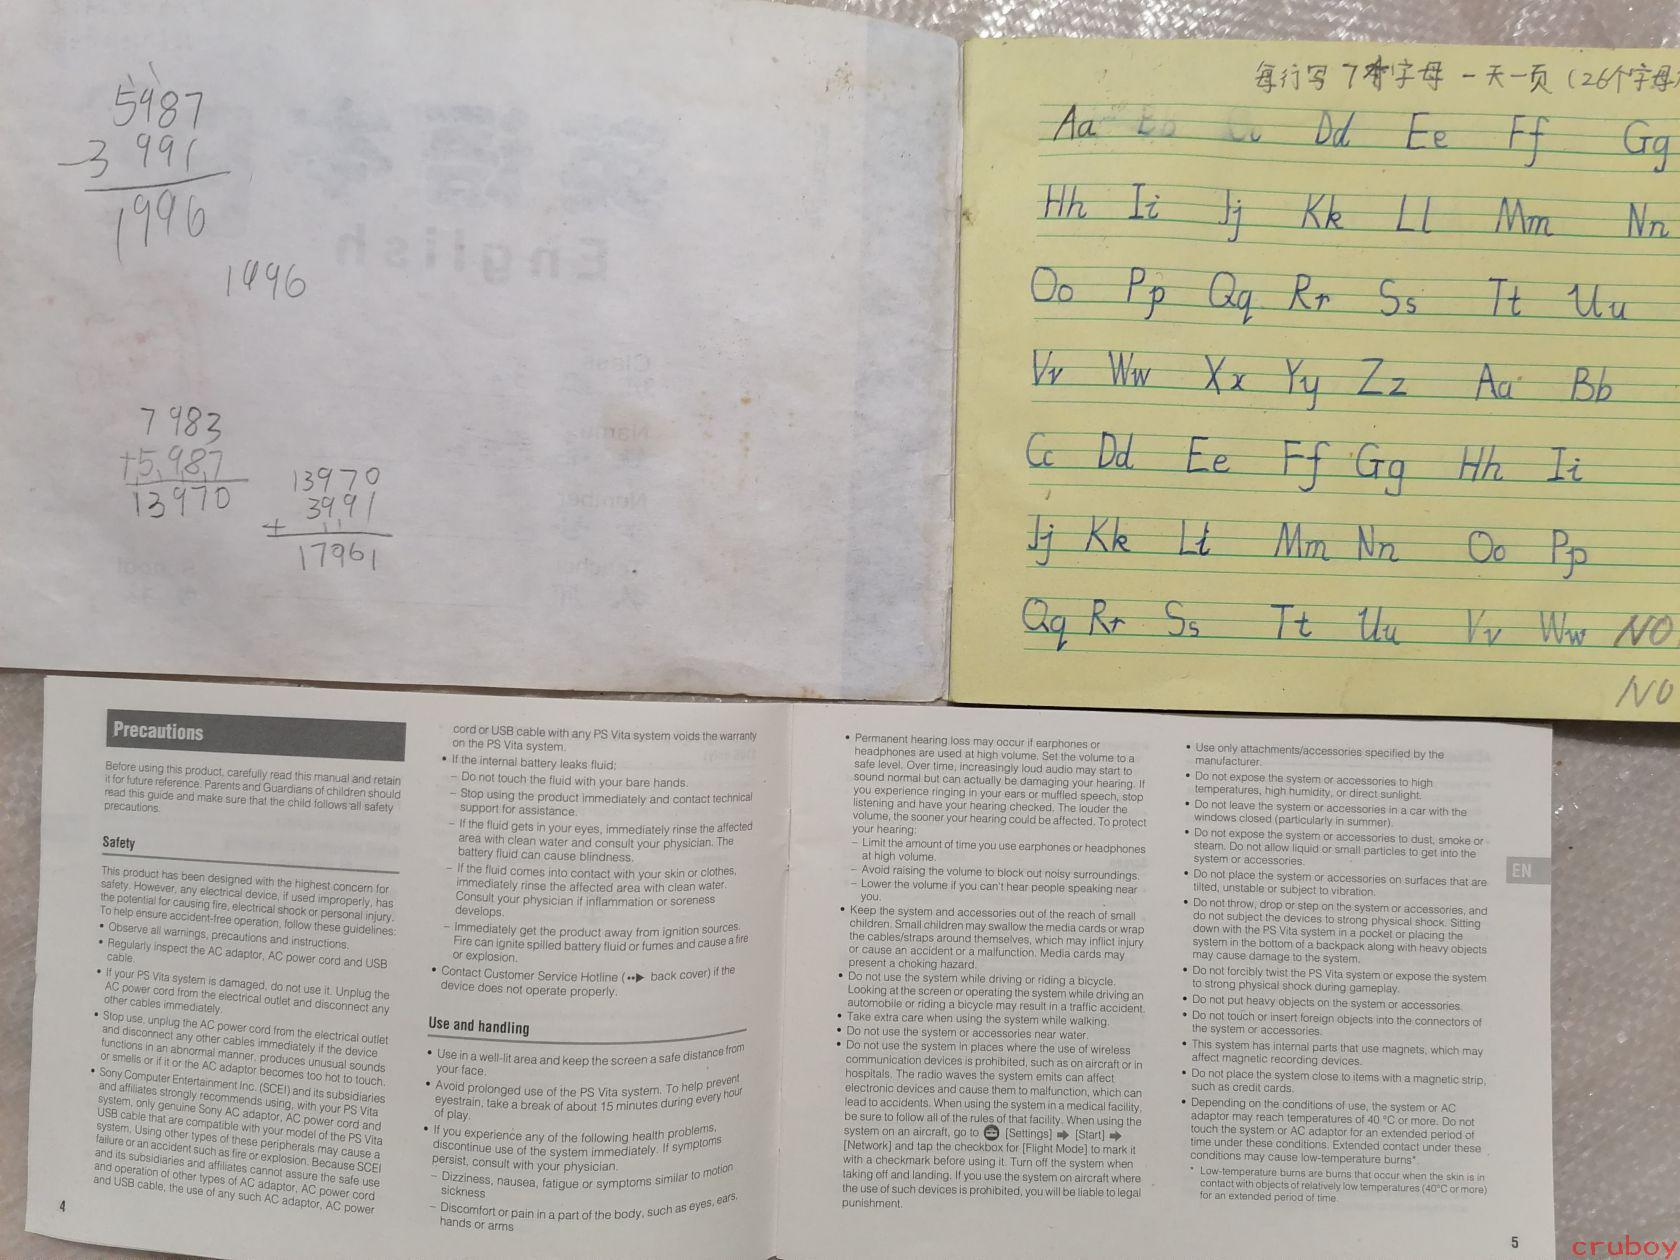 5987
-3991
1996
1996
7983
+5,9,8,7
13970
13970
3991
+
17961
每行写7个字母一天一页(26个字母
Aa Bb Cc Dd Ee Ff Gg
Hh Ii Jj Kk Ll Mm Nn
Oo Pp Qq Rr Ss Tt Uu
Vv Ww Xx Yy Zz Aa Bb
Cc Dd Ee Ff Gg Hh Ii
Jj Kk Ll Mm Nn Oo Pp
Qq Rr Ss Tt Uu Vv Ww NO
NO
English
Class
Name
Number
School
Precautions
Before using this product, carefully read this manual and retain
it for future reference. Parents and Guardians of children should
read this guide and make sure that the child follows all safety
precautions.
Safety
This product has been designed with the highest concern for
safety. However, any electrical device, if used improperly, has
the potential for causing fire, electrical shock or personal injury.
To help ensure accident-free operation, follow these guidelines:
• Observe all warnings, precautions and instructions.
• Regularly inspect the AC adaptor, AC power cord and USB
cable.
• If your PS Vita system is damaged, do not use it. Unplug the
AC power cord from the electrical outlet and disconnect any
other cables immediately.
• Stop use, unplug the AC power cord from the electrical outlet
and disconnect any other cables immediately if the device
functions in an abnormal manner, produces unusual sounds
or smells or if it or the AC adaptor becomes too hot to touch.
• Sony Computer Entertainment Inc. (SCEI) and its subsidiaries
and affiliates strongly recommends using, with your PS Vita
system, only genuine Sony AC adaptor, AC power cord and
USB cable that are compatible with your model of the PS Vita
system. Using other types of these peripherals may cause a
failure or an accident such as fire or explosion. Because SCEI
and its subsidiaries and affiliates cannot assure the safe use
and operation of other types of AC adaptor, AC power cord
and USB cable, the use of any such AC adaptor, AC power
4
cord or USB cable with any PS Vita system voids the warranty
on the PS Vita system.
• If the internal battery leaks fluid:
– Do not touch the fluid with your bare hands.
– Stop using the product immediately and contact technical
support for assistance.
– If the fluid gets in your eyes, immediately rinse the affected
area with clean water and consult your physician. The
battery fluid can cause blindness.
– If the fluid comes into contact with your skin or clothes,
immediately rinse the affected area with clean water.
Consult your physician if inflammation or soreness
develops.
– Immediately get the product away from ignition sources.
Fire can ignite spilled battery fluid or fumes and cause a fire
or explosion.
• Contact Customer Service Hotline (••▶ back cover) if the
device does not operate properly.
Use and handling
• Use in a well-lit area and keep the screen a safe distance from
your face.
• Avoid prolonged use of the PS Vita system. To help prevent
eyestrain, take a break of about 15 minutes during every hour
of play.
• If you experience any of the following health problems,
discontinue use of the system immediately. If symptoms
persist, consult with your physician.
– Dizziness, nausea, fatigue or symptoms similar to motion
sickness
– Discomfort or pain in a part of the body, such as eyes, ears,
hands or arms
• Permanent hearing loss may occur if earphones or
headphones are used at high volume. Set the volume to a
safe level. Over time, increasingly loud audio may start to
sound normal but can actually be damaging your hearing. If
you experience ringing in your ears or muffled speech, stop
listening and have your hearing checked. The louder the
volume, the sooner your hearing could be affected. To protect
your hearing:
– Limit the amount of time you use earphones or headphones
at high volume.
– Avoid raising the volume to block out noisy surroundings.
– Lower the volume if you can't hear people speaking near
you.
• Keep the system and accessories out of the reach of small
children. Small children may swallow the media cards or wrap
the cables/straps around themselves, which may inflict injury
or cause an accident or a malfunction. Media cards may
present a choking hazard.
• Do not use the system while driving or riding a bicycle.
Looking at the screen or operating the system while driving an
automobile or riding a bicycle may result in a traffic accident.
• Take extra care when using the system while walking.
• Do not use the system or accessories near water.
• Do not use the system in places where the use of wireless
communication devices is prohibited, such as on aircraft or in
hospitals. The radio waves the system emits can affect
electronic devices and cause them to malfunction, which can
lead to accidents. When using the system in a medical facility,
be sure to follow all of the rules of that facility. When using the
system on an aircraft, go to [Settings] ➡ [Start] ➡
[Network] and tap the checkbox for [Flight Mode] to mark it
with a checkmark before using it. Turn off the system when
taking off and landing. If you use the system on aircraft where
the use of such devices is prohibited, you will be liable to legal
punishment.
• Use only attachments/accessories specified by the
manufacturer.
• Do not expose the system or accessories to high
temperatures, high humidity, or direct sunlight.
• Do not leave the system or accessories in a car with the
windows closed (particularly in summer).
• Do not expose the system or accessories to dust, smoke or
steam. Do not allow liquid or small particles to get into the
system or accessories.
• Do not place the system or accessories on surfaces that are
tilted, unstable or subject to vibration.
• Do not throw, drop or step on the system or accessories, and
do not subject the devices to strong physical shock. Sitting
down with the PS Vita system in a pocket or placing the
system in the bottom of a backpack along with heavy objects
may cause damage to the system.
• Do not forcibly twist the PS Vita system or expose the system
to strong physical shock during gameplay.
• Do not put heavy objects on the system or accessories.
• Do not touch or insert foreign objects into the connectors of
the system or accessories.
• This system has internal parts that use magnets, which may
affect magnetic recording devices.
• Do not place the system close to items with a magnetic strip,
such as credit cards.
• Depending on the conditions of use, the system or AC
adaptor may reach temperatures of 40 °C or more. Do not
touch the system or AC adaptor for an extended period of
time under these conditions. Extended contact under these
conditions may cause low-temperature burns*.
* Low-temperature burns are burns that occur when the skin is in
contact with objects of relatively low temperatures (40°C or more)
for an extended period of time.
EN
5
cruboy